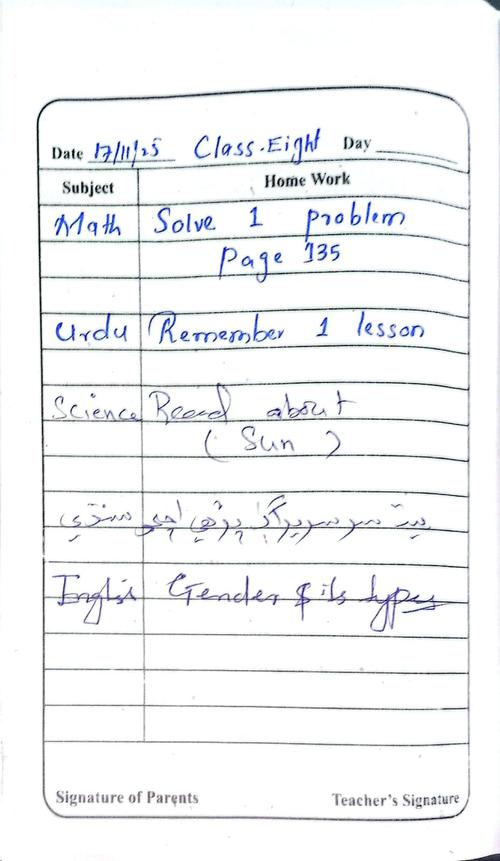 Date 17/11/25 Class.Eight Day
Subject Home Work
Math Solve 1 problem
Page 135
Urdu Remember 1 lesson
Science Read about
(Sun)
پڙهي اچو سنڌي
English Gender & its types
Signature of Parents Teacher's Signature